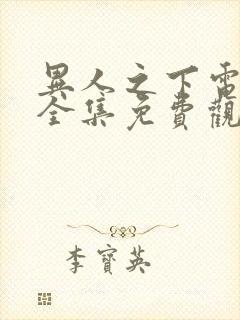 異人之下電
全集免費觀
李寶英